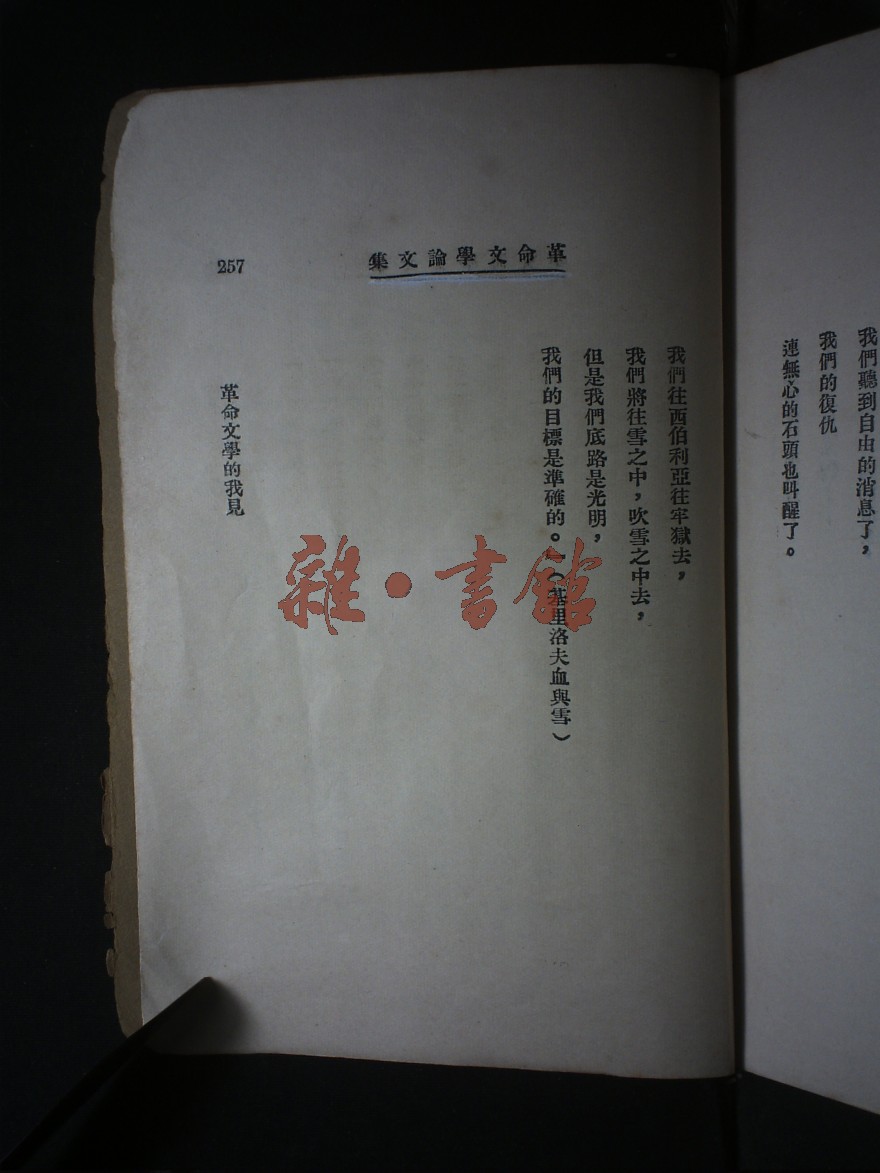 我們聽到自由的消息了，
我們的復仇
連無心的石頭也叫醒了。
革命文學論文集
我們往西伯利亞往牢獄去，
我們將往雪之中，吹雪之中去，
但是我們底路是光明，
我們的目標是準確的。」（基里洛夫血與雪）
革命文學的我見
257
雜·書館